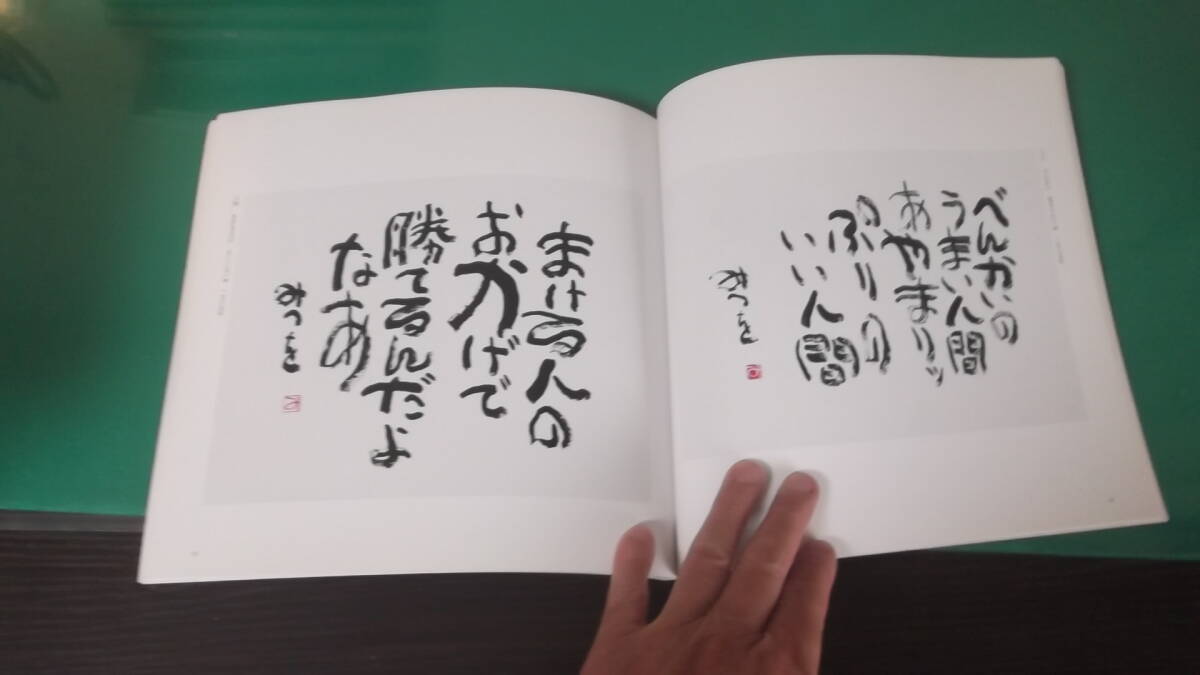 べんかいの
うまい人間
あやまりッ
ぷりの
いい人間
みつを
まける人の
おかげで
勝てるんだよ
なあ
みつを